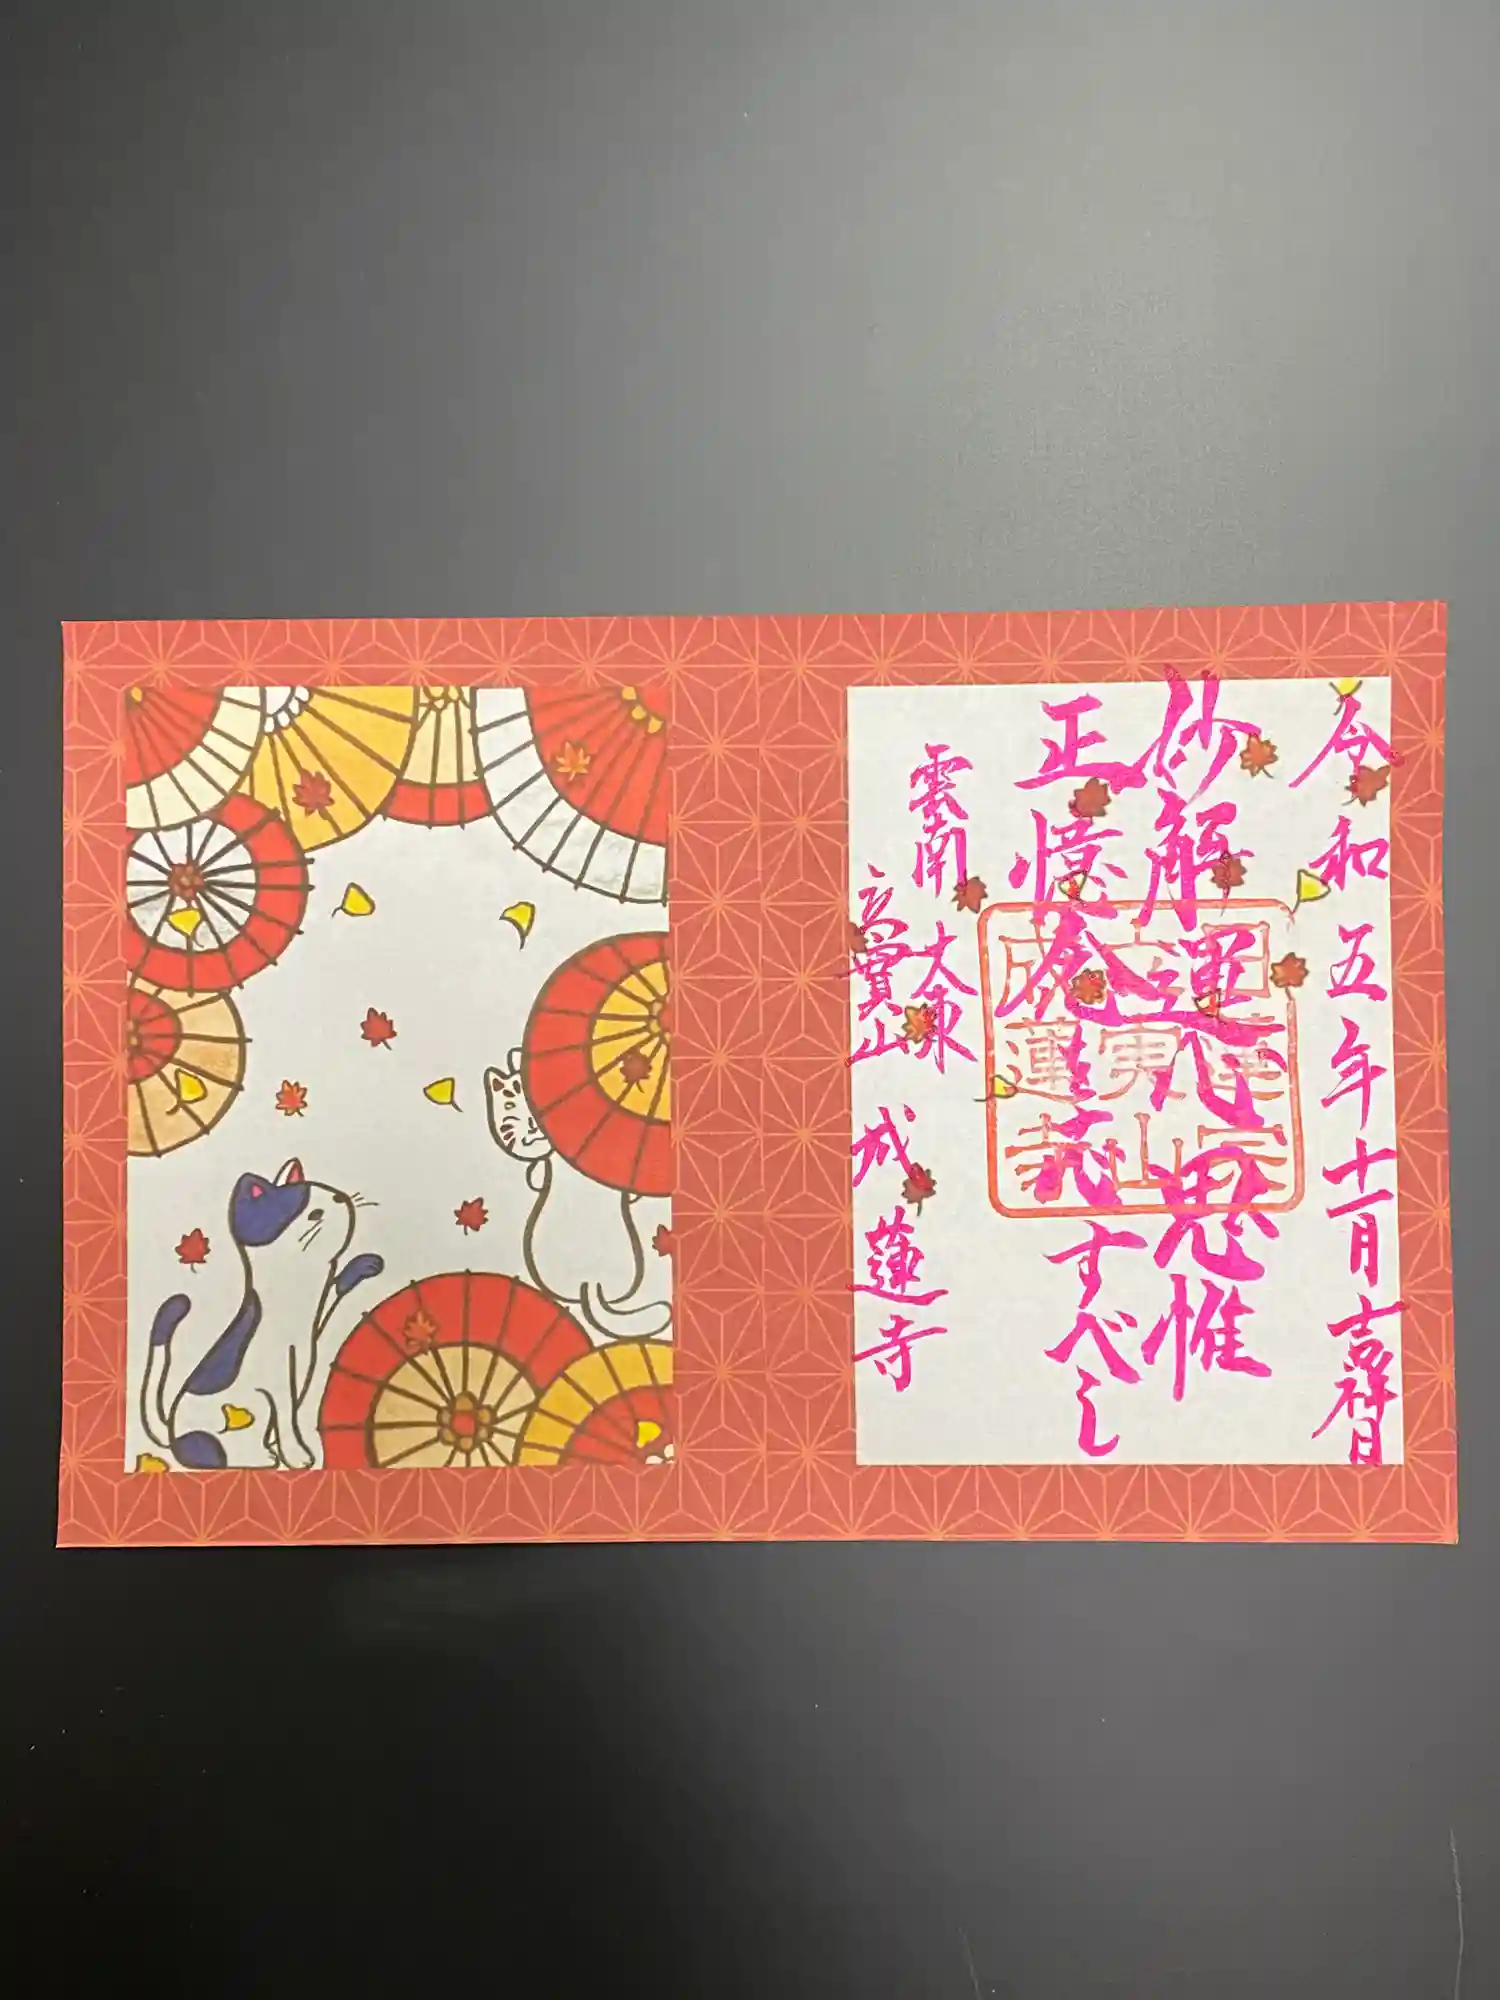 令和五年十一月吉祥日
妙解運心思惟
正憶念すべし
雲南 大東
立實山 成蓮寺
日蓮宗
立実山
成蓮寺